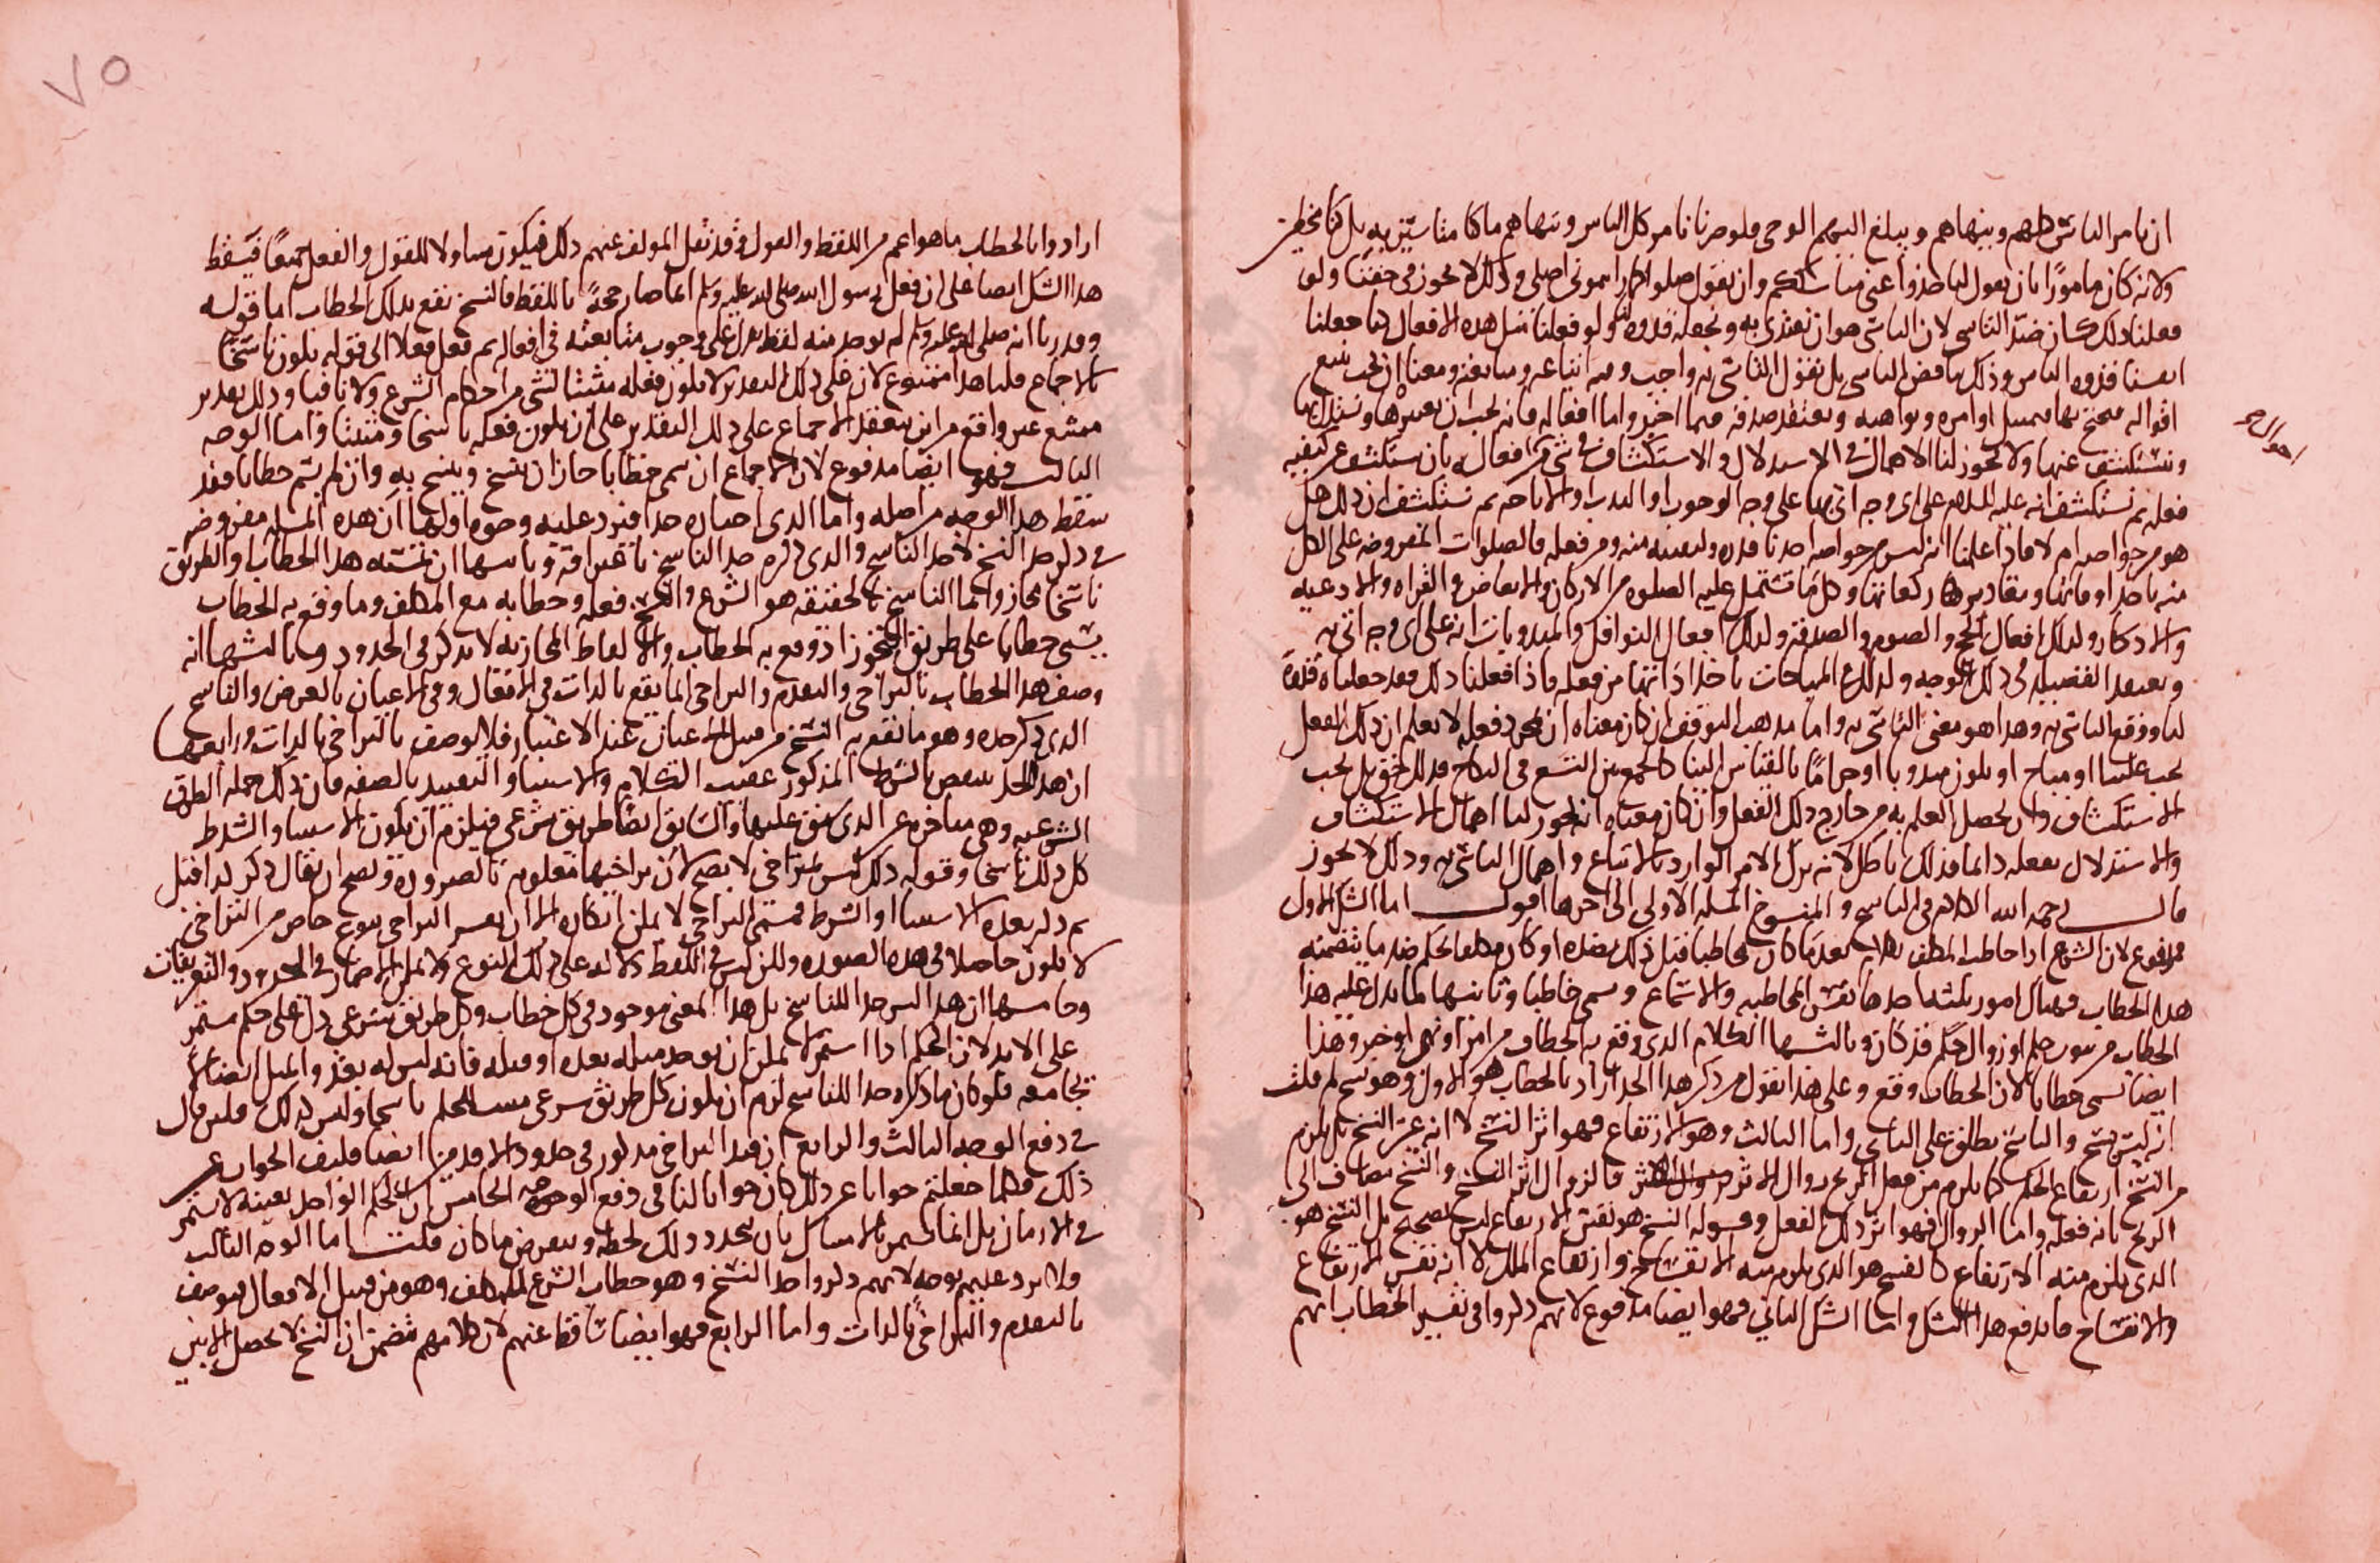 ان يامر الناس كلهم وينهاهم ويبلغ اليهم الوحى فلو صرنا نامر كل الناس وننهاهم ما كنا متاسين به بل كنا مخطين
ولانه كان مامورًا بان يقول لنا خذوا عنى مناسككم وان يقول صلوا كما رايتمونى اصلى وذلك لا يجوز فى حقنا ولو
فعلنا ذلك كان ضد التاسى لان التاسى هو ان نقتدى به ونجعله قدوه لنا ولو فعلنا مثل هذه الافعال لنا جعلنا
انفسنا قدوه الناس وذلك يناقض التاسى بل نقول التاسى به واجب وفيه اتباعه ومتابعته ومعناه ان يجب نتبع
اقواله فيمتثل اوامره ونواهيه ونعتقد صدقه فيما اخبر واما افعاله فانه يجب ان نعتبرها
ونستكشف عنها ولا يجوز لنا الاهمال فى الاستدلال والاستكشاف فى شى من افعاله بان نستكشف عن كيفيه
فعله ثم نستكشف انه عليه السلام على اى وجه اتى بها على وجه الوجوب او الندب او الاباحه ثم نستكشف ان ذلك هل
هو من خواصه ام لا فاذا علمنا انه ليس من خواصه اخذنا قدره وكيفيته منه ومن فعله فالصلوات المفروضه على الكل
منه ناخذ اوقاتها ومقاديرها وركعاتها وكل ما تشتمل عليه الصلوه من الاركان والابعاض والقراه والادعيه
والاذكار وكذلك افعال الحج والصوم والصدقه وكذلك افعال النوافل والمندوبات انه على اى وجه اتى به
ونعتقد الفضيله فى ذلك الوجه وكذلك المباحات ناخذ اداتها من فعله فاذا فعلنا ذلك فقد جعلناه قدوة
لنا ووقع التاسى به وهذا هو معنى التاسى به واما مذهب التوقف ان كان معناه ان بمجرد فعله لا نعلم ان ذلك الفعل
يجب علينا او مباح او يكون مندوبا او حرامًا بالقياس الينا كالجمع بين التسع فى النكاح فذلك حق بل يجب
الاستكشاف وان يحصل العلم به من خارج ذلك الفعل وان كان معناه انه يجوز لنا اهمال الاستكشاف
والاستدلال بفعله دائما فذلك باطل لانه ترك الامر الوارد بالاتباع واهمال التاسى به وذلك لا يجوز
قال رحمه الله الكلام فى الناسخ والمنسوخ المسله الاولى الى اخرها اقول اما الشك الاول
فمدفوع لان الشرع اذا خاطب المكلف بكلام بعد ما كان مخاطبا قبل ذلك بضده او كان مكلفا بحكم ضد ما يتضمنه
هذا الخطاب فهناك امور ثلثه احدها نفس المخاطبه والاستماع وسمى خاطبا وثانيها لما يدل عليه هذا
الخطاب من ثبوت حكم او زوال حكم قد كان وثالثها الكلام الذى وقع به الخطاب من امر او نهى او خبر وهذا
ايضا يسمى خطابا لان الخطاب وقع وعلى هذا نقول من ذكر هذا الحد اراد بالخطاب هو الاول وهو نسخ لم قلت
انه ليس بنسخ والناسخ يطلق على الثانى واما الثالث وهو الارتفاع فهو اثر النسخ لا انه عين النسخ بل يلزم
من النسخ ارتفاع الحكم كما يلزم من فعل الريح زوال الاثر فالزوال اثر النسخ والنسخ مضاف الى
الريح بانه فعله واما الزوال فهو اثر ذلك الفعل وقوله النسخ هو نفس الارتفاع ليس بصحيح بل النسخ هو
الذى يلزم منه الارتفاع كالفسخ هو الذى يلزم منه الانفساخ وارتفاع الملك لا انه نفس الارتفاع
والانفساخ فاندفع هذا الشك واما الشك الثانى فهو ايضا مدفوع لانهم ذكروا فى تفسير الخطاب انهم
ارادوا بالخطاب ما هو اعم من اللفظ والفول وقد نقل المولف عنهم ذلك فيكون متناولا للقول والفعل جميعًا فيسقط
هذا الشك ايضا على ان فعل رسول الله صلى الله عليه وسلم انما صار حجةً باللفظ فالنسخ يقع بذلك الخطاب اما قوله
وقدرنا انه صلى الله عليه وسلم لم يوجد منه لفظ يدل على وجوب متابعته فى افعاله ثم فعل فعلا الى قوله يكون ناسخًا
بالاجماع قلنا هذا ممنوع لان على ذلك التقدير لا يكون فعله مثبتا لشى من احكام الشرع ولا نافيا وذلك تقدير
ممتنع غير واقع من اين ينعقد الاجماع على ذلك التقدير على ان يكون فعله ناسخا ومثبتا واما الوجه
الثالث فهو ايضًا مدفوع لان الاجماع ان سمى خطابا جاز ان ينسخ وينسخ به وان لم يسم خطابا فقد
سقط هذا الوجه من اصله واما الذى اختاره حدا فيرد عليه وجوه اولها ان هذه المسله مفروضه
فى ذكر حد النسخ لا حد الناسخ والذى ذكره حد الناسخ باعترافه وثانيها ان تسميته هذا الخطاب والطريق
ناسخا مجاز وانما الناسخ بالحقيقه هو الشرع والنسخ فعله وخطابه مع المكلف وما وقع به الخطاب
يسمى خطابا على طريق التجوز اذ وقع به الخطاب والالفاظ المجازيه لا تذكر فى الحدود وثالثها انه
وصف هذا الخطاب بالتراخى والتقدم والتراخى انما يقع بالذات فى الافعال وفى الاعيان بالعرض والناسخ
الذى ذكر حده وهو ما يقع به النسخ من قبيل الاعيان عند الاعتبار فلا يوصف بالتراخى بالذات ورابعها
ان هذا الحد ينتقض بالشرط المذكور عقيب الكلام والاستثنا والتقييد بالصفه فان ذلك جمله الطرق
الشرعيه وهى متاخره عن الذى سبق عليها والسابق ايضًا طريق شرعى فيلزم ان يكون الاستثنا والشرط
كل ذلك ناسخا وقوله ذلك ليس بمتراخى لا يصح لان تراخيها معلوم بالضروره ويصح ان يقال ذكر كذا قبل
ثم ذكر بعده الاستثنا او الشرط فمسمى التراخى لا يمكن انكاره الا ان يفسر التراخى بنوع خاص من التراخى
لا يكون حاصلا فى هذه الصوره ولكن ليس فى اللفظ دلاله على ذلك النوع ولا يمكن الاضمار فى الحدود والتعريفات
وخامسها ان هذا ليس حدا للناسخ بل هذا المعنى موجود فى كل خطاب وكل طريق شرعى دل على حكم مستمر
على الابد لان الحكم اذا استمر لا يمكن ان يوجد مثله بعده او قبله فانه ليس له بعد والمثل ايضا لا
يجامعه فلو كان ما ذكره حدا للناسخ لزم ان يكون كل طريق شرعى مثبت للحكم ناسخا وليس كذلك فلئن قال
فى دفع الوجه الثالث والرابع ان قيد التراخى مذكور فى حدود الاقدمين ايضا فكيف الجواب عن
ذلك فمهما جعلتم جوابا عن ذلك كان جوابا لنا فى دفع الوجه الخامس ان الحكم الواحد بعينه لا يستمر
فى الازمان بل انما يستمر بالامثال بان يتجدد ذلك لحظه ويعرض ما كان قلت اما الوجه الثالث
فلا يرد عليهم بوجه لانهم ذكروا حد النسخ وهو خطاب الشرع للمكلف وهو من قبيل الافعال فيوصف
بالتقدم والتراخى بالذات واما الرابع فهو ايضا ساقط عنهم لان كلامهم متضمن ان النسخ لا يحصل الا بين
٧٥